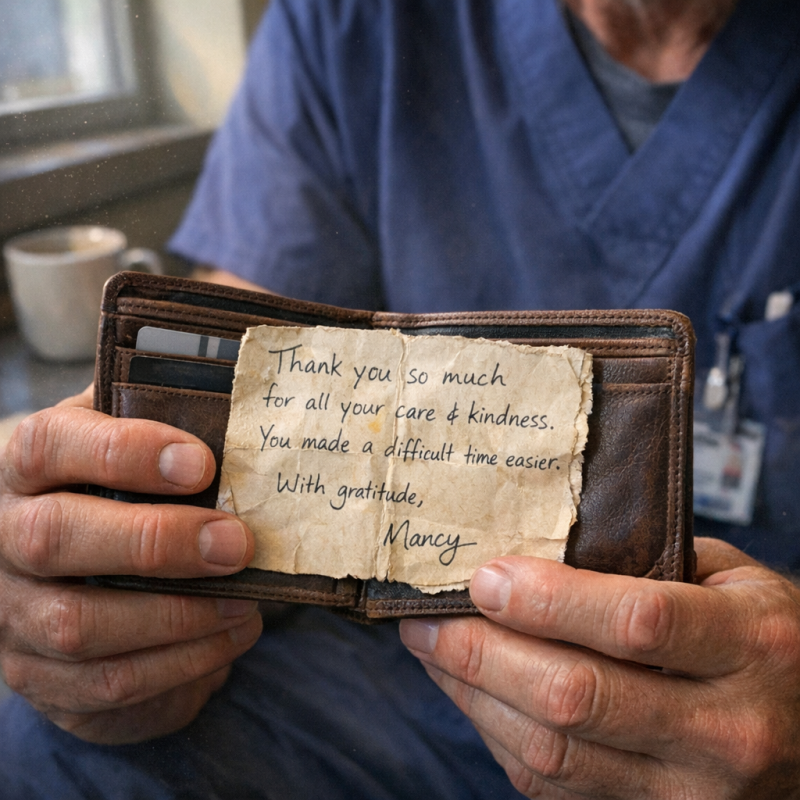 Thank you so much
for all your care & kindness.
You made a difficult time easier.
With gratitude,
Mancy